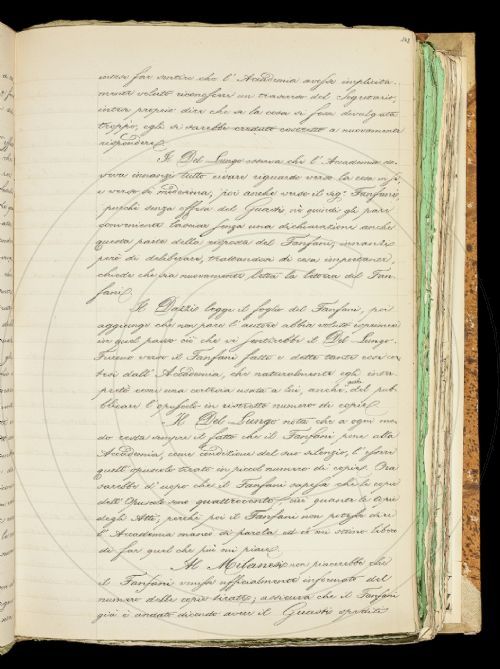 intese far sentire che l'Accademia avesse implicita-
mente voluto riconoscere un trascorso del Segretario,
intese proprio dire che se la cosa si fosse divulgata
troppo, egli si sarebbe creduto costretto a nuovamente
rispondere.
Il Del Lungo osserva che l'Accademia do-
veva innanzi tutto avere riguardo verso la cosa in sé
e verso la medesima, poi anche verso il Sig.r Fanfani,
perchè senza offesa del Guasti nè quindi gli pare
conveniente lasciar senza una dichiarazione anche
questa parte della risposta del Fanfani; innanzi
però di deliberare, trattandosi di cosa importante,
chiede che sia nuovamente letta la lettera del Fan-
fani.
Il Dazzi legge il foglio del Fanfani, poi
aggiunge che non pare l'autore abbia voluto esprimere
in quel passo ciò che vi sentirebbe il Del Lungo.
Furono verso il Fanfani fatte e dette tante cose in-
tesi dall'Accademia, che naturalmente egli inter-
pretò come una cortesia usata a lui, anche quella del pub-
blicare l'opuscolo in ristretto numero di copie.
Il Del Lungo nota che a ogni mo-
do resta sempre il fatto che il Fanfani pone alla
Accademia, come condizione del suo silenzio, l'essere
quell'opuscolo tirato in piccol numero di copie. Ora
sarebbe d'uopo che il Fanfani sapesse che le copie
dell'Opuscolo sono quattrocento, cioè quante le copie
degli Atti, perchè poi il Fanfani non potesse dire:
l'Accademia mancò di parola ed io mi stimo libero
di far quel che più mi piace.
Al Milanesi non piacerebbe che
il Fanfani venisse officialmente informato del
numero delle copie tirate; assicura che il Fanfani
già è andato dicendo avere il Guasti